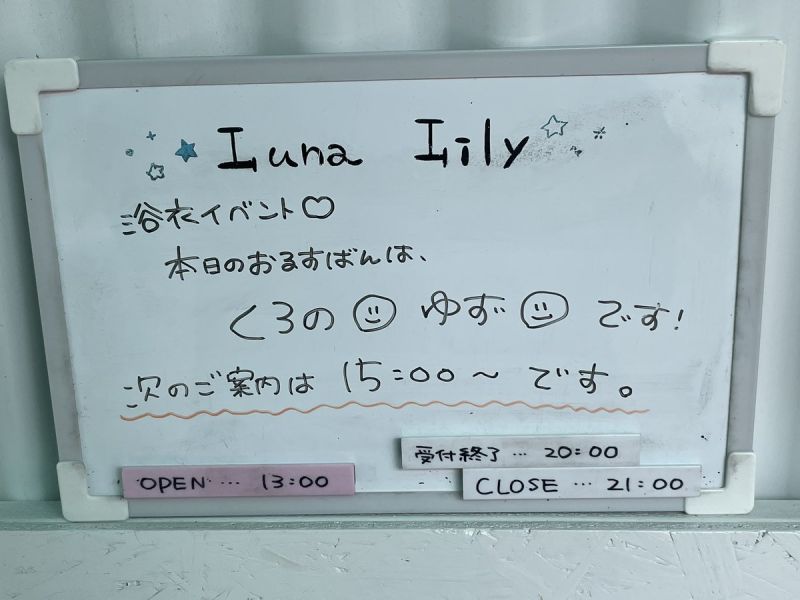 Luna Lily
浴衣イベント♡
本日のおるすばんは、
くろの☺ ゆず☺ です!
次のご案内は 15:00～ です。
受付終了… 20:00
OPEN … 13:00
CLOSE … 21:00